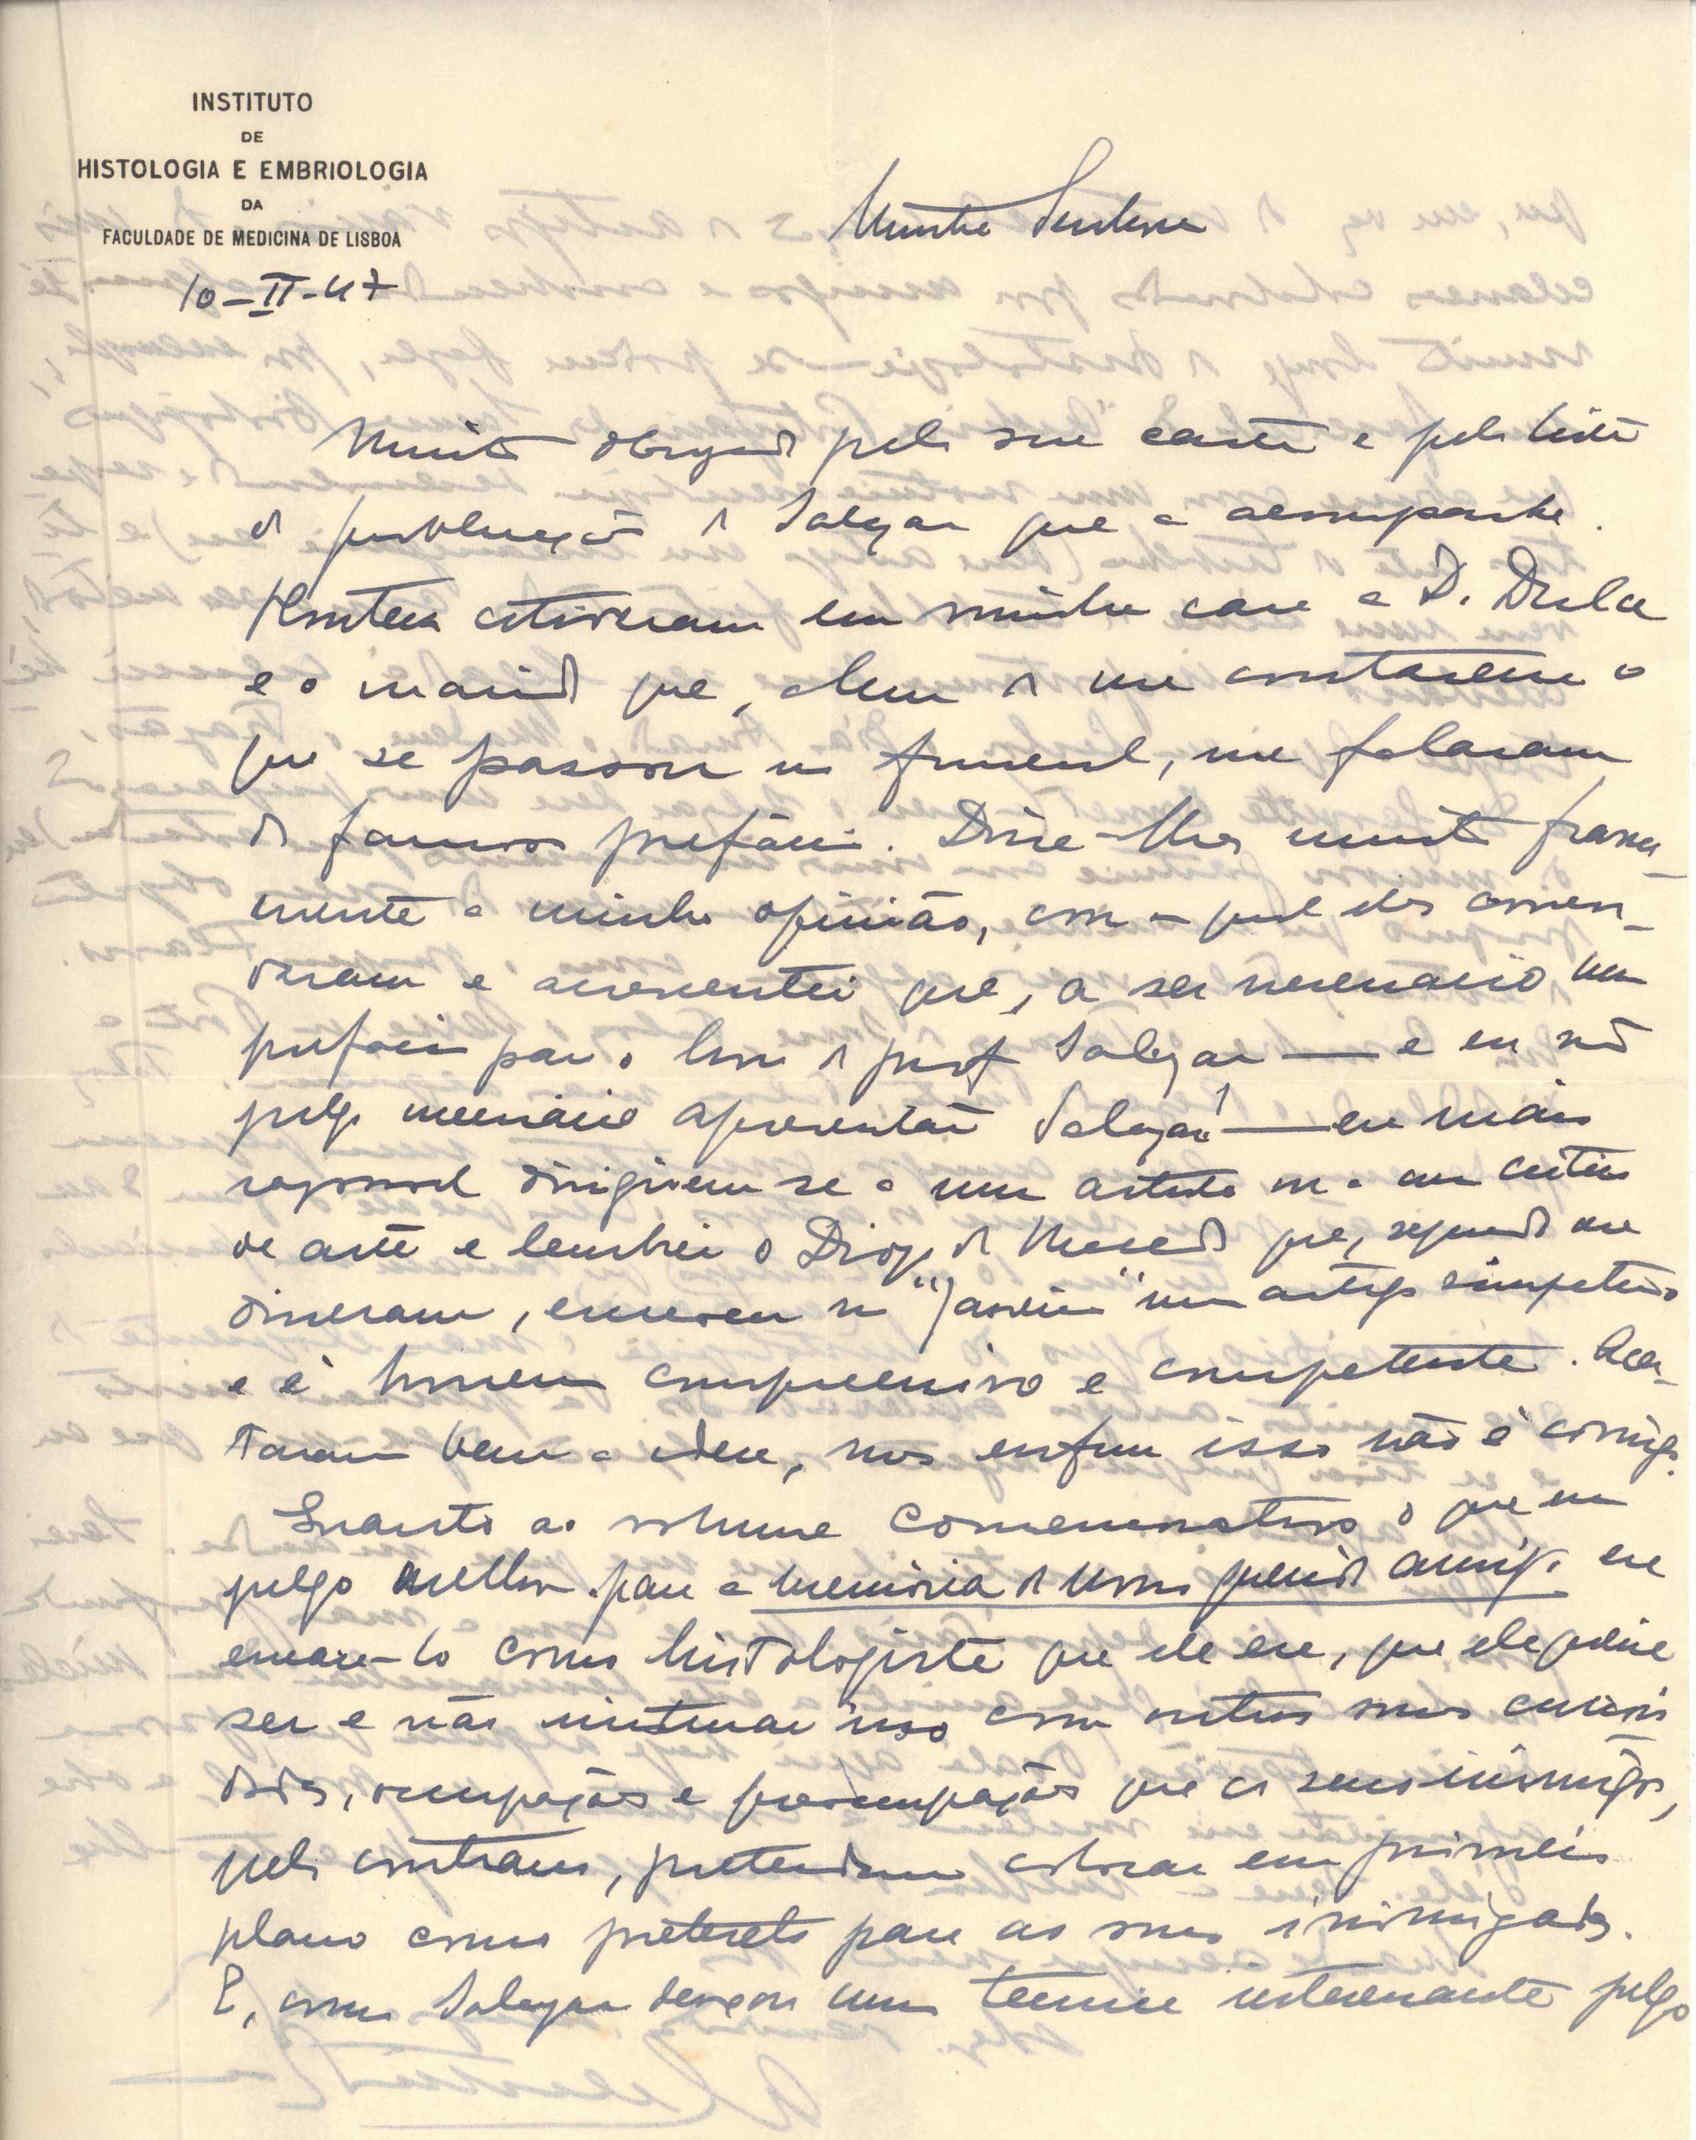 INSTITUTO
DE
HISTOLOGIA E EMBRIOLOGIA
DA
FACULDADE DE MEDICINA DE LISBOA
10-II-47
Minha Senhora
Muito obrigado pela sua carta e pela lista
de publicações de Salazar que a acompanha.
Hontem estiveram em minha casa a D. Dulce
e o marido que, alem de me contarem o
que se passou no funeral, me falaram
do famoso prefácio. Disse-lhes muito franca-
mente a minha opinião, com a qual eles concor-
daram e acrescentei que, a ser necessario um
prefacio para o livro do prof Salazar — e eu não
julgo necessário apresentar Salazar! — era mais
razoavel dirigirem se a um artista ou a um critico
de arte e lembrei o Diogo de Macedo que, segundo me
disseram, escreveu no "Janeiro" um artigo simpatico
e é homem compreensivo e competente. Acei-
taram bem a ideia, mas enfim isso não é comigo.
Quanto ao volume comemorativo o que eu
julgo melhor para a memoria do nosso querido amigo era
encara-lo como histologista que ele era, que ele queria
ser e não misturar isso com outras suas curiosi
dades, ocupações e preocupações que os seus inimigos,
pelo contrario, pretendem colocar em primeiro
plano como pretexto para as suas inimizades.
E, como Salazar deixou uma tecnica interessante julgo